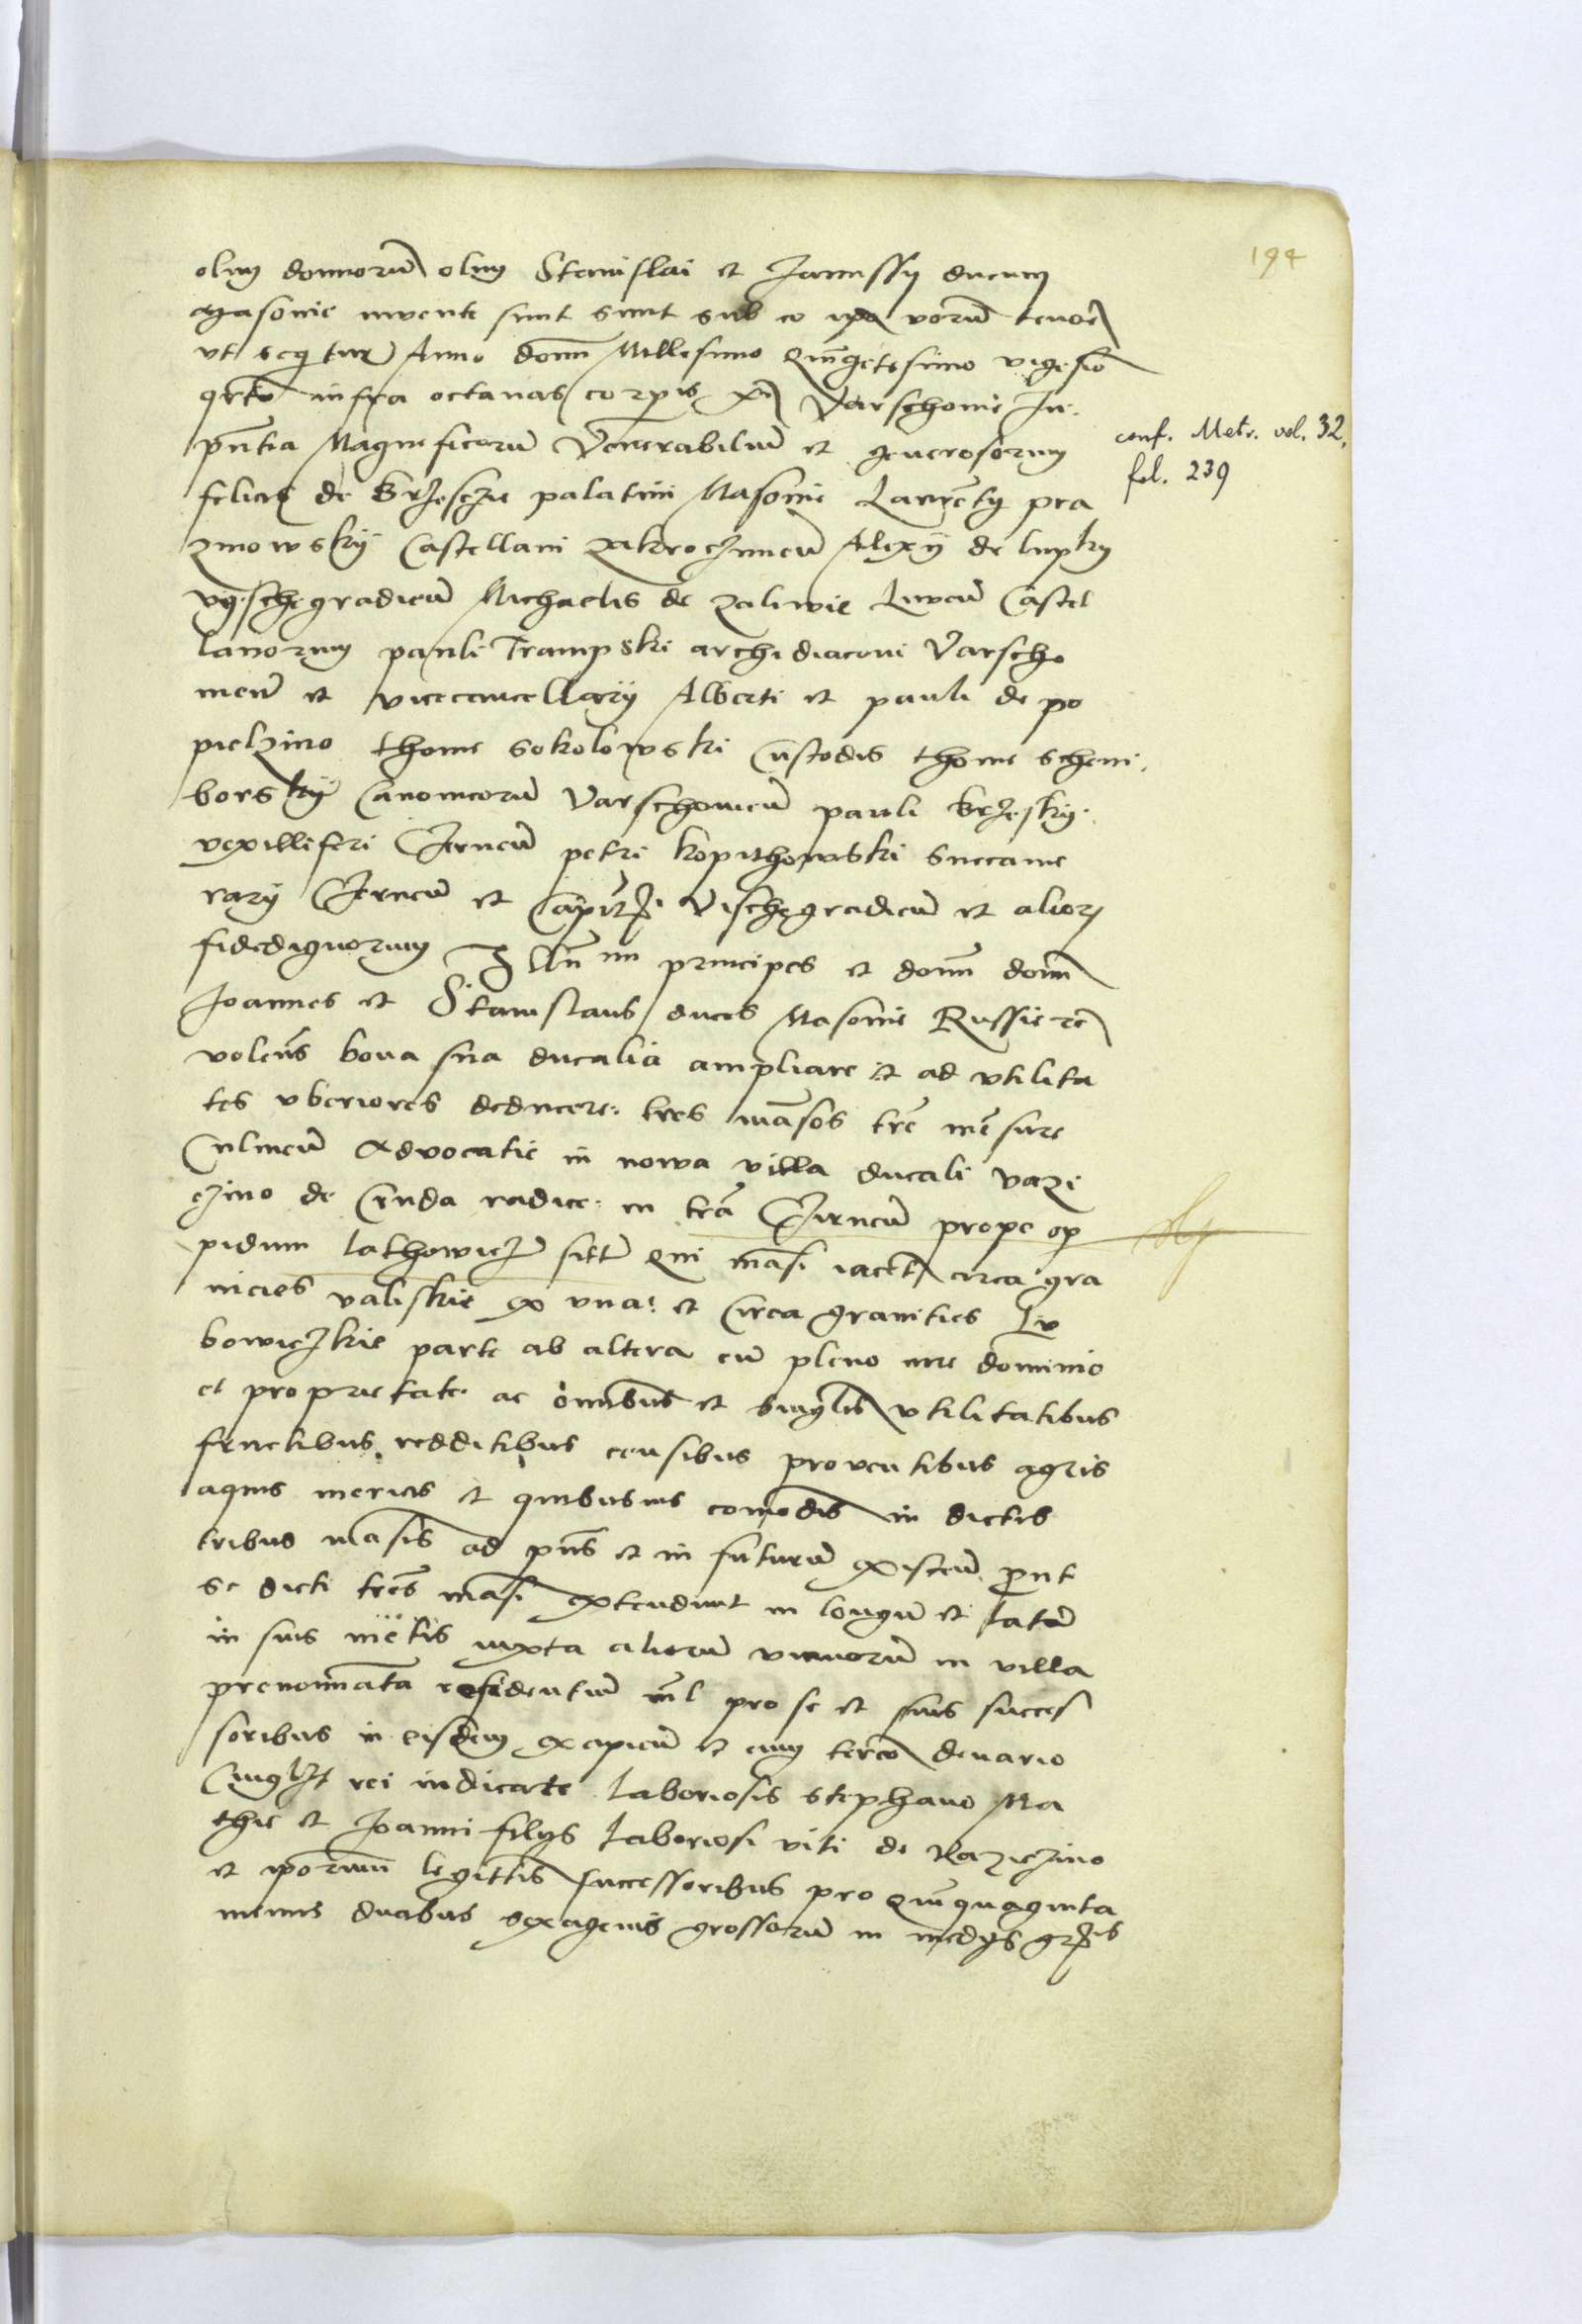 194
olim dominorum olim Stanislai et Janussy ducum
Masovie invente sunt sunt sub eo verborum tenore
ut sequitur Anno domini Millesimo Quingetesimo vigesimo
qrto infra octavas corporis xpi Varschovie In
pntia Magnificorum Venerabilium et generosorum
felicis de Brzesczie palatini Masovie Laurenty pra
zmowsky Castellani zakroczimen Alexy de lupky
vyschegradien Michaelis de zaliwie Liwen Castel
lanorum pauli Trampski archidiaconi Varscho
vien et vicecancellary Alberti et pauli de po
pielzino thome sokolowski Custodis thome scheni
borsky Canonicorum Varschovien pauli Brzesky
vexilliferi Czirnen petri kopithowski succame
rary Czirnen et Capitanei Vischegradien et aliorum
fidedignorum Illrmi principes et domini domini
Joannes et Stanislaus duces Masovie Russie etc
volens bona sua ducalia ampliare et ad utilita
tes uberiores deducere tres mansos terre mensure
Culmen Advocatie in nowa villa ducali vazi
czino de Cruda radice in terra Czirnen prope op
pidum lathowicz sitt qui mansi iacent circa gra
nicies valiskie ex una et Circa granities Lu
bowiczkie parte ab altera cum pleno iure dominio
et proprietate ac omnibus et singulis utilitatibus
fructibus redditibus censibus proventibus agris
aquis mericis et quibusvis comodis in dictis
tribus mansis ad pns et in futurum existen prout
se dicti tres mansi extendunt in longum et latum
in suis metis iuxta aliorum vicinorum in villa
prenominata residentium pro se et suis succes
soribus in eisdem excipien et cum tercio denario
cuiuslibet rei indicate laboriosis Stephano Ma
thie et Joanni filys laboriosi viti de Raziczino
et ipsorum legittimis successoribus pro quinquaginta
minus duabus sexagenis grossorum in medys grossis
conf. Metr. vol. 32,
fol. 239